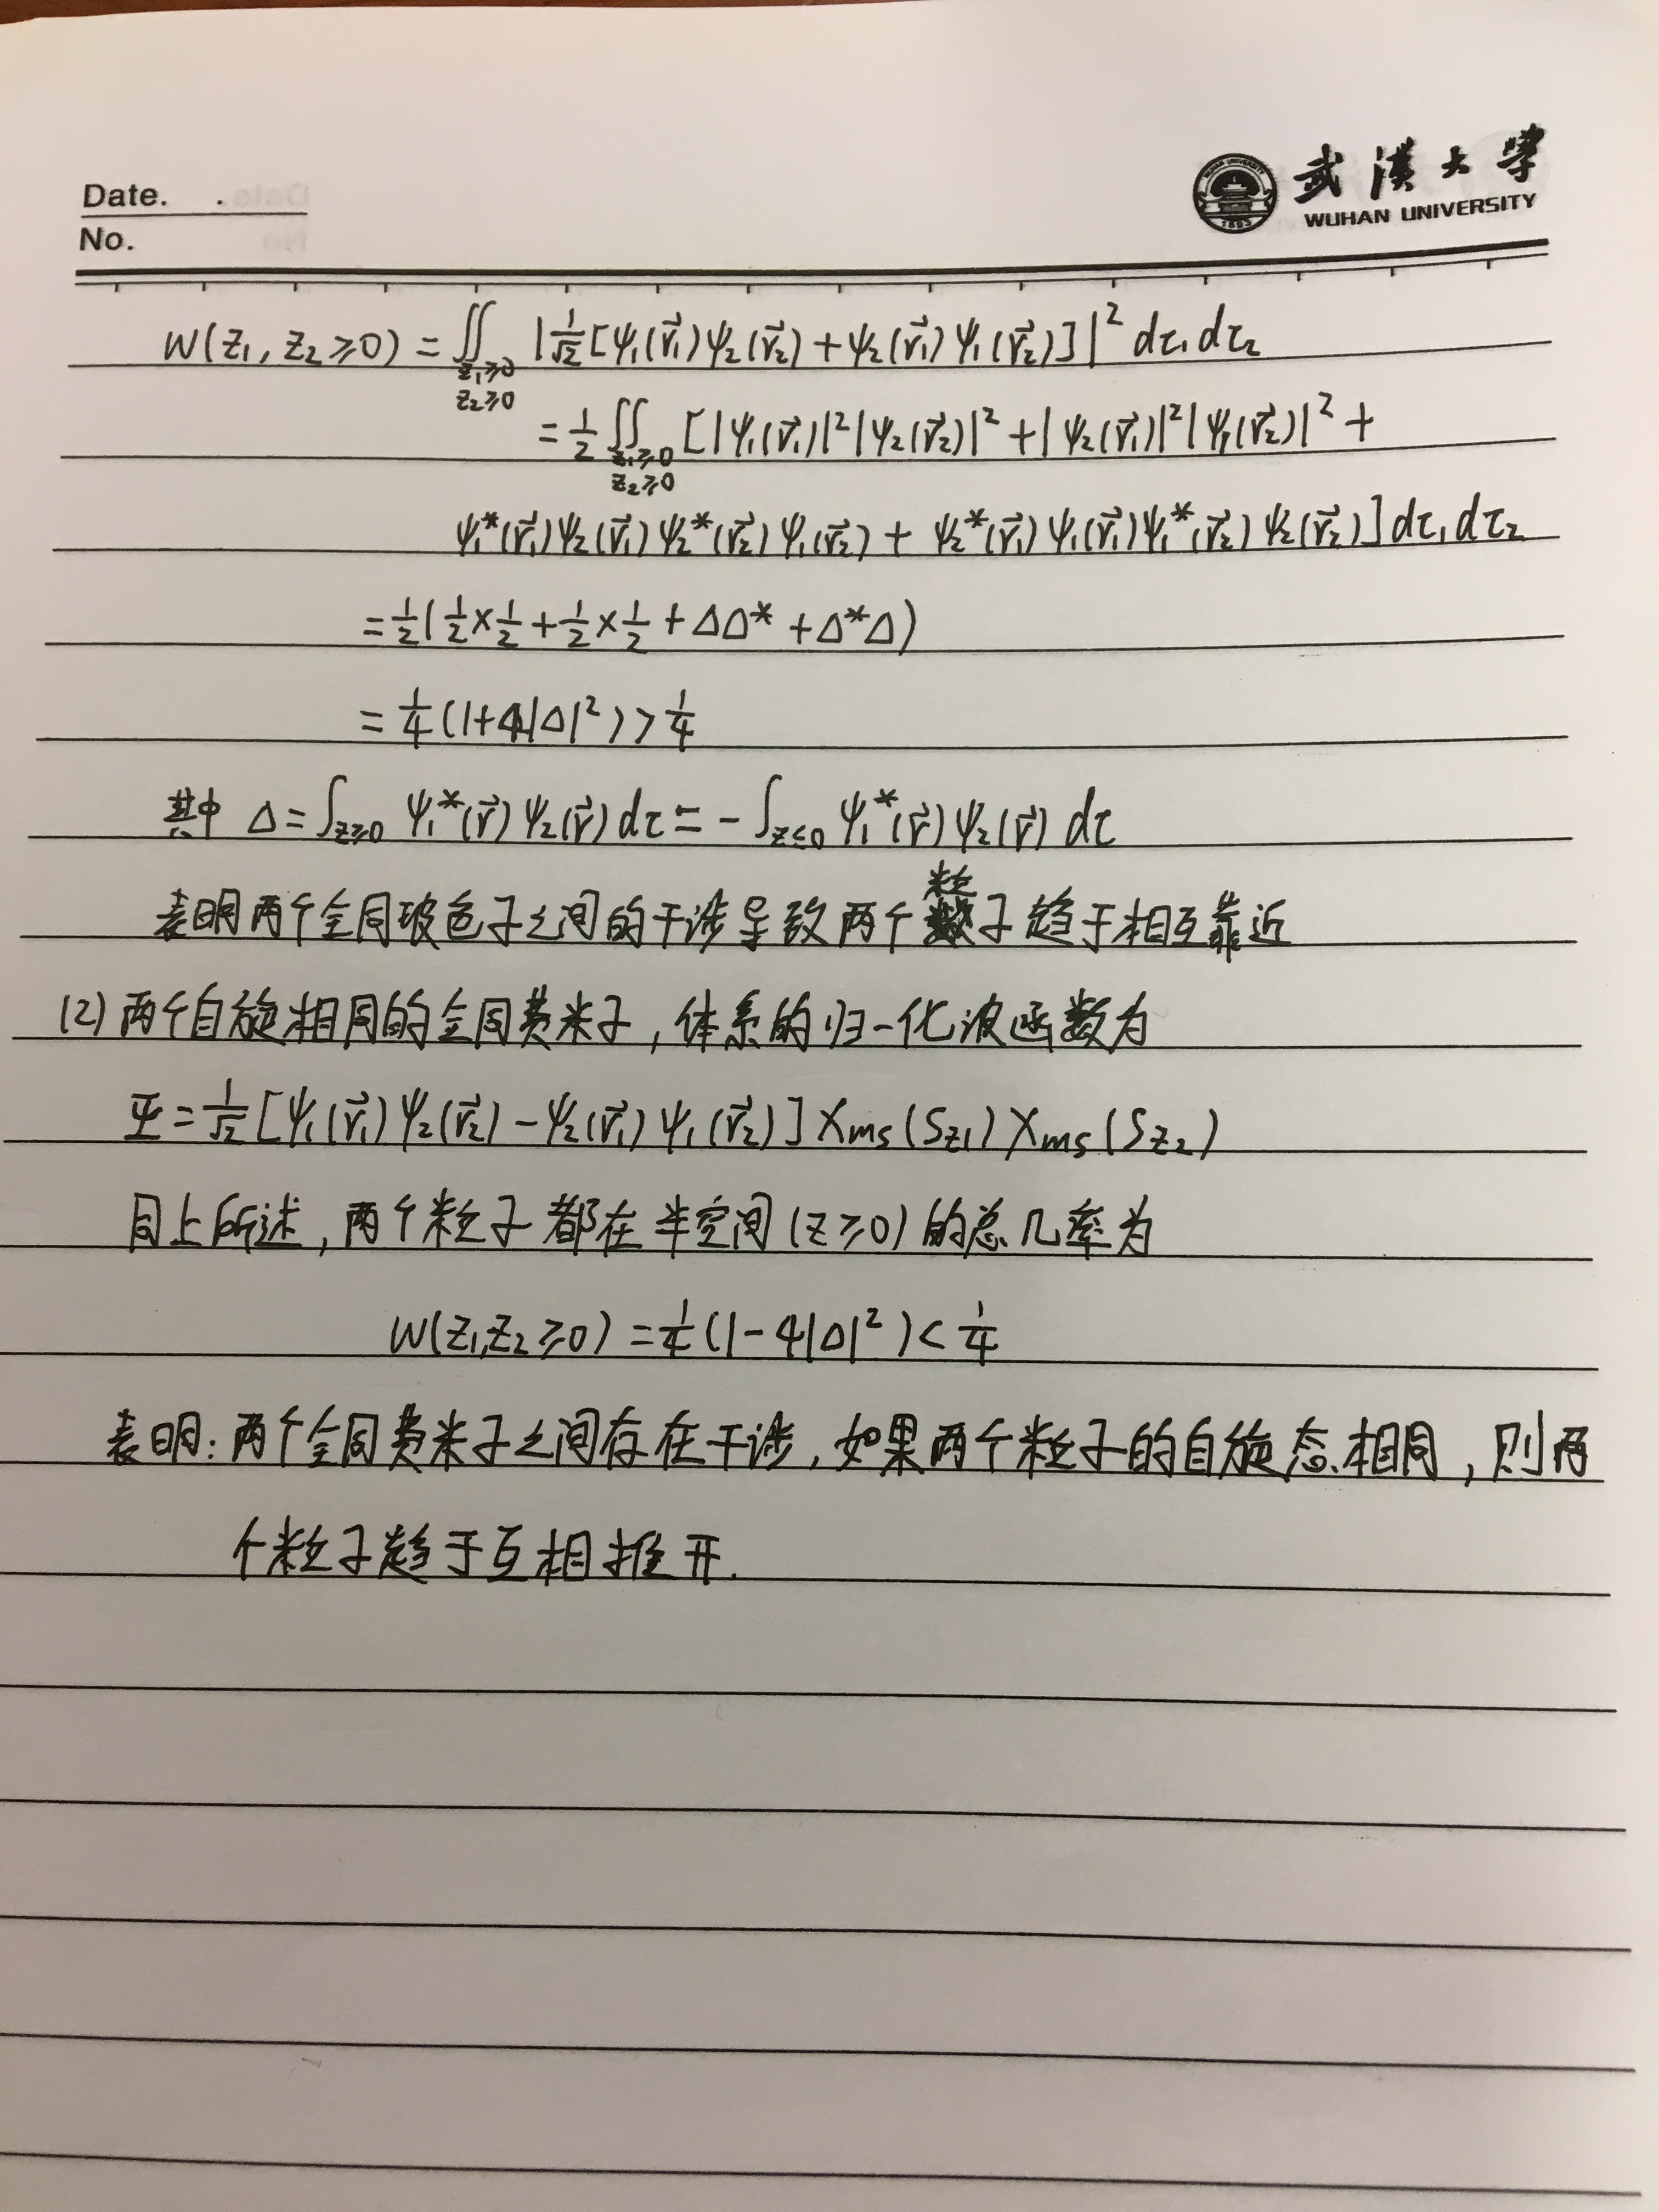 Date. .
No.
武漢大學
WUHAN UNIVERSITY
W(z₁, z₂≥0) = ∬_{z₁≥0 z₂≥0} |1/√2[ψ₁(r⃗₁)ψ₂(r⃗₂)+ψ₂(r⃗₁)ψ₁(r⃗₂)]|² dτ₁dτ₂
= 1/2 ∬_{z₁≥0 z₂≥0} [|ψ₁(r⃗₁)|²|ψ₂(r⃗₂)|²+|ψ₂(r⃗₁)|²|ψ₁(r⃗₂)|²+
ψ₁*(r⃗₁)ψ₂(r⃗₁)ψ₂*(r⃗₂)ψ₁(r⃗₂) + ψ₂*(r⃗₁)ψ₁(r⃗₁)ψ₁*(r⃗₂)ψ₂(r⃗₂)]dτ₁dτ₂
= 1/2(1/2×1/2+1/2×1/2+ΔΔ*+Δ*Δ)
= 1/4(1+4|Δ|²)>1/4
其中 Δ=∫_{z≥0} ψ₁*(r⃗)ψ₂(r⃗)dτ = -∫_{z≤0} ψ₁*(r⃗)ψ₂(r⃗)dτ
表明两个全同玻色子之间的干涉导致两个粒子趋于相互靠近
(2)两个自旋相同的全同费米子,体系的归一化波函数为
Ψ=1/√2[ψ₁(r⃗₁)ψ₂(r⃗₂)-ψ₂(r⃗₁)ψ₁(r⃗₂)]χms(Sz₁)χms(Sz₂)
同上所述,两个粒子都在半空间(z≥0)的总几率为
W(z₁,z₂≥0)=1/4(1-4|Δ|²)<1/4
表明:两个全同费米子之间存在干涉,如果两个粒子的自旋态相同,则两
个粒子趋于互相推开.